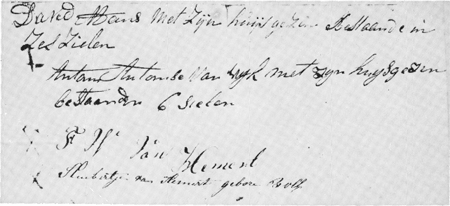 David Mans met zijn huisgezin Bestaande in
Zes Zielen
Antonie Antonisse van Wyk met zyn huysgezin
bestaande 6 sielen
F H van Hemert
van Hemert geboren Wolf